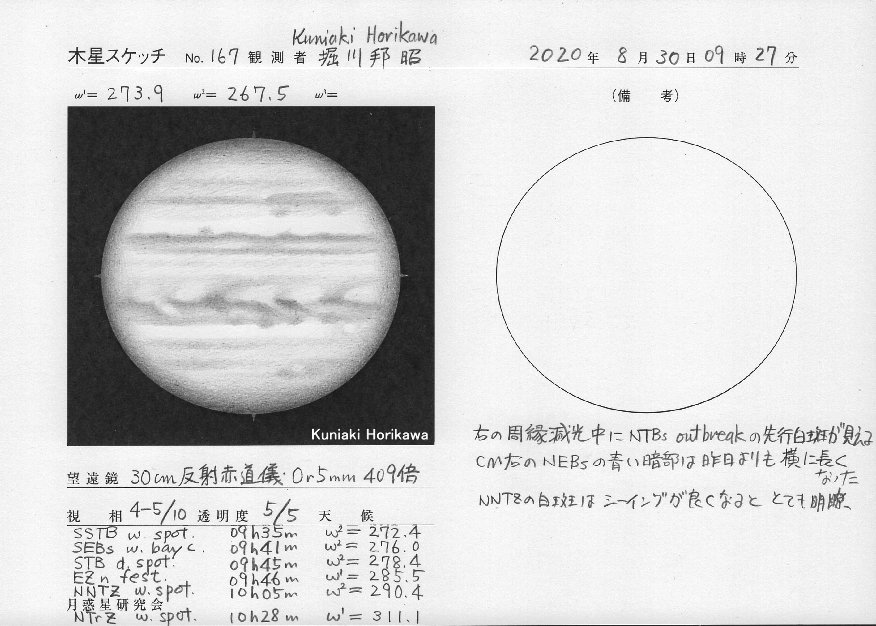 Kuniaki Horikawa
木星スケッチ No. 167 観測者 堀川邦昭 2020年 8月30日09時27分
ω¹= 273.9 ω²= 267.5 ω³=
(備 考)
Kuniaki Horikawa
右の周縁減光中にNTBs outbreakの先行白斑が見える
CM右のNEBsの青い暗部は昨日よりも横に長く
なった
NNTZの白斑はシーイングが良くなるととても明瞭、
望遠鏡 30cm反射赤道儀・Or5mm 409倍
視 相 4-5/10 透明度 5/5 天 候
SSTB w. spot. 09h35m ω²= 272.4
SEBs w. bay c. 09h41m ω²= 276.0
STB d. spot. 09h45m ω²= 278.4
EZn fest. 09h46m ω¹= 285.5
NNTZ w. spot. 10h05m ω²= 290.4
月惑星研究会
NTrZ w. spot. 10h28m ω¹= 311.1